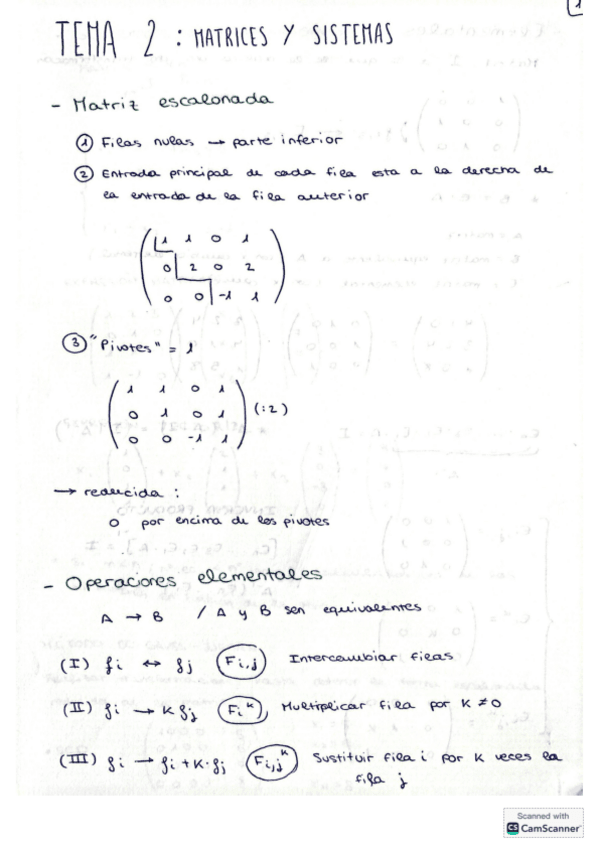 1
TEMA 2 : MATRICES Y SISTEMAS
- Matriz escalonada
① Filas nulas → parte inferior
② Entrada principal de cada fila esta a la derecha de
la entrada de la fila anterior
1 1 0 1
0 2 0 2
0 0 -1 1
③ "Pivotes" = 1
1 1 0 1
0 1 0 1 (:2)
0 0 -1 1
→ reducida :
0 por encima de los pivotes
- Operaciones elementales
A → B / A y B sen equivalentes
(I) fi ↔ fj Fi,j Intercambiar filas
(II) fi → K fj Fi^K Multiplicar fila por K ≠ 0
(III) fi → fi + K · fj Fi,j^K Sustituir fila i por K veces la
fila j
Scanned with
CS CamScanner